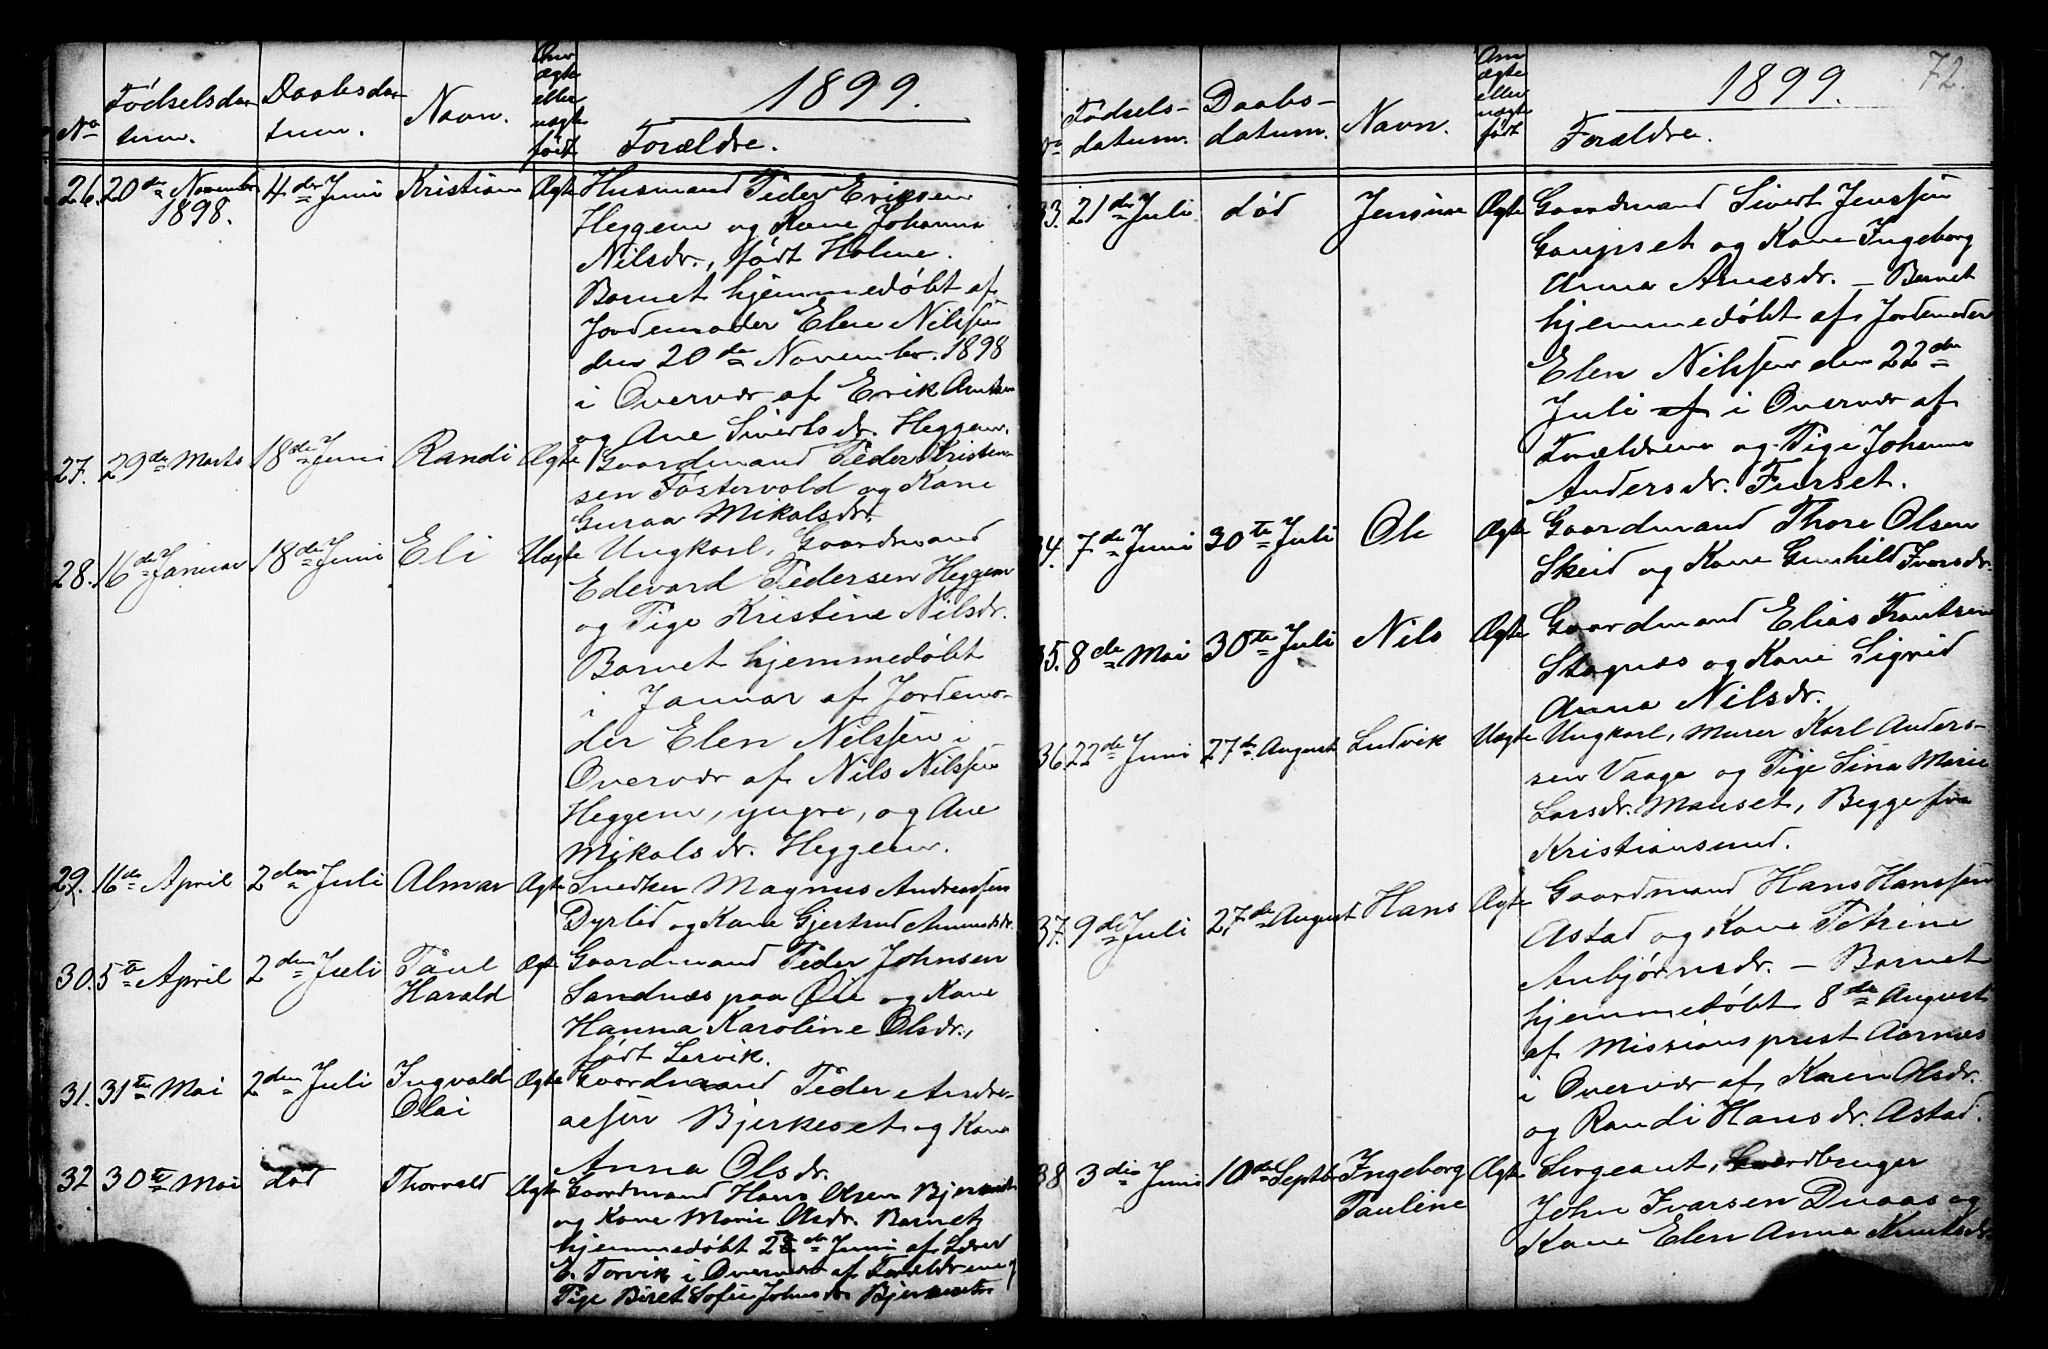 No
Fødselsda-
tum.
Daabsda-
tum.
Navn.
Om
ægte
eller
uægte
født
1899.
Forældre.
26. 20de Novembr 1898. 4de Juni Kristian Ægte Husmand Peder Eriksen
Heggem og Kone Johanna
Nilsdr., født Holme.
Barnet hjemmedøbt af
Jordemoder Elen Nilssen
den 20de Novembr. 1898
i Overvær af Erik
og Ane Sivertsdr. Heggem.
27. 29de Marts 18de Juni Randi Ægte Gaardmand Peder Kristen-
sen Fostervold og Kone
Guraa Mikalsdr.
28. 16de Januar 18de Juni Eli Uægte Ungkarl, Gaardmand
Edevard Pedersen Heggem
og Pige Kristine Nilsdr.
Barnet hjemmedøbt
i Januar af Jordemo-
der Elen Nilssen i
Overvær af Nils Nilssen
Heggem, yngre, og Ane
Mikalsdr. Heggem.
29. 16de April 2den Juli Almar Ægte Snedker Magnus Andreassen
Dyrlid og Kone Gjertrud Amundsdr.
30. 5te April 2den Juli Paul Harald Ægte Gaardmand Peder Johnsen
Sandnæs paa Øie og Kone
Hanna Karoline Olsdr.,
født Lervik.
31. 31te Mai 2den Juli Ingvald Olai Ægte Gaardmand Peder Andre-
aesen Bjerkeset og Kone
Anna Olsdr.
32 30te Mai død Thorvald Ægte Gaardmand Hans Olsen
og Kone Marie Olsdr. Barnet
hjemmedøbt 28de Juni af Lærer
E. Torvik i Overvær af Forældrene og
Pige Beret Sofie Johnsdr.
72.
No
Fødsels-
datum.
Daabs-
datum.
Navn.
Om
ægte
eller
uægte
født
1899.
Forældre.
33. 21de Juli død Jensine Ægte Gaardmand Sivert Jenssen
Gaupset og Kone Ingeborg
Anna Arnesdr. – Barnet
hjemmedøbt af Jordemoder
Elen Nilssen den 22de
Juli af i Overvær af
Forældrene og Pige Johanna
Andersdr. Furset.
34. 7de Juni 30te Juli Ole Ægte Gaardmand Thore Olsen
Skeid og Kone Gunhild Ivarsdr.
35. 8de Mai 30te Juli Nils Ægte Gaardmand Elias Frantsen
Stognæs og Kone Sigrid
Anna Nilsdr.
36. 22de Juni 27de August Ludvik Uægte Ungkarl, Murer Karl Anders-
sen Vaage og Pige Sina Marie
Larsdr. Mauset, Begge fra
Kristiansund.
37. 9de Juli 27de August Hans Ægte Gaardmand Hans Hanssen
Astad og Kone Petrine
Anbjørnsdr. – Barnet
hjemmedøbt 8de August
af Missionsprest Aarnæs
i Overvær af Karen Olsdr.
og Randi Hansdr. Astad.
38 3die Juni 10de Septbr Ingeborg Pauline Ægte Sergeant, Gaardbruger
John Ivarsen Duaas og
Kone Elen Anna Knutsdr.